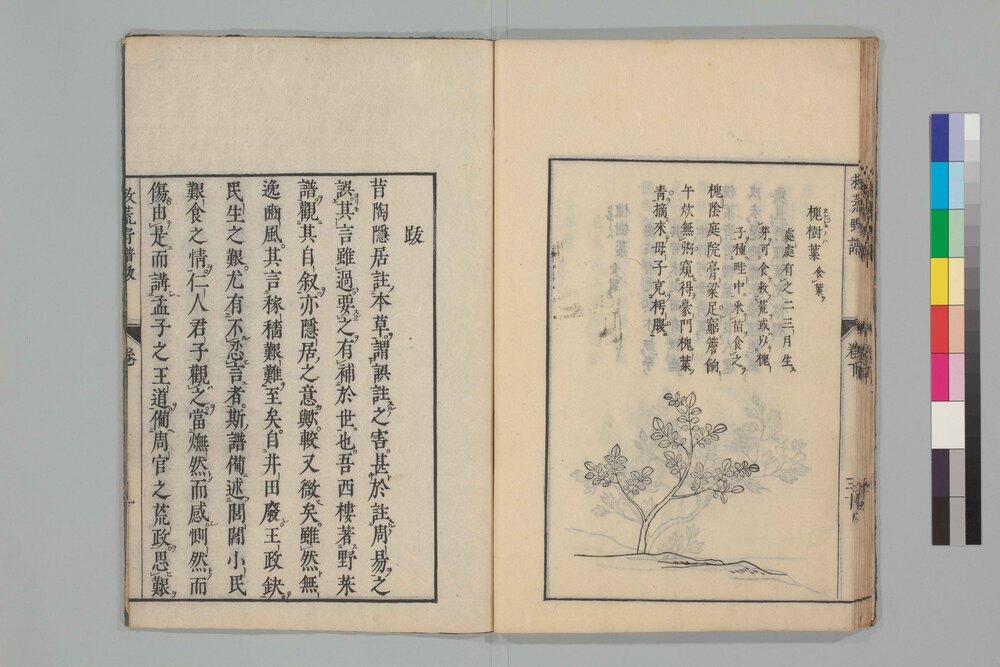 救荒野譜
卷下
槐樹葉 食葉
處處有之二三月生
芽可食救荒或以槐
子種畦中采苗食之
槐陰庭院亭梁足窮簷餉
午炊無粥窺得豪門槐葉
青摘來母子克枵腹
跋
昔陶隱居註本草謂誤註之害甚於註周易之
誤其言雖過要之有補於世也吾西樓著野菜
譜觀其自叙亦隱居之意歟較又微矣雖然無
逸豳風其言稼穡艱難至矣自井田廢王政缺
民生之艱尤有不忍言者斯譜備述閭閻小民
艱食之情仁人君子觀之當憮然而感惻然而
傷由是而講孟子之王道備周官之荒政思艱
卷